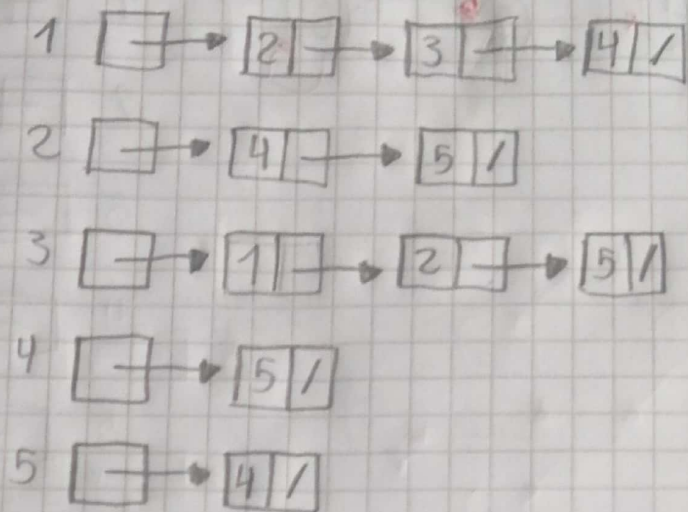 1 2 3 4 /
2 4 5 /
3 1 2 5 /
4 5 /
5 4 /